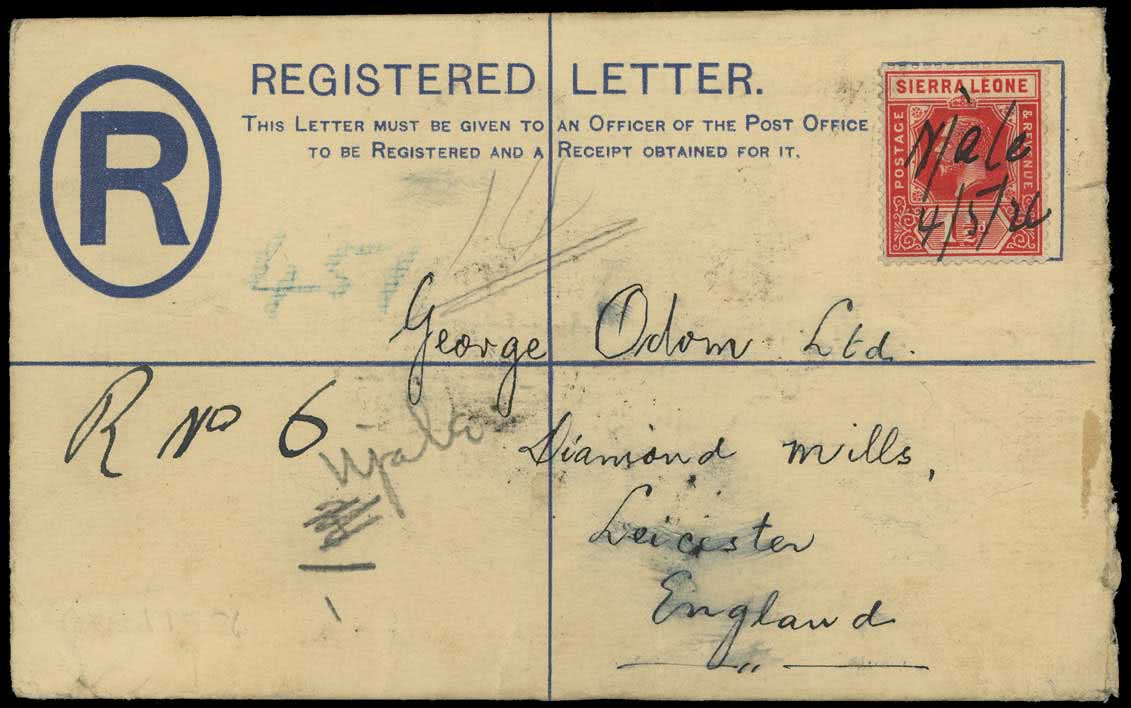 REGISTERED LETTER.
THIS LETTER MUST BE GIVEN TO AN OFFICER OF THE POST OFFICE
TO BE REGISTERED AND A RECEIPT OBTAINED FOR IT.
R
SIERRA LEONE
POSTAGE
& REVENUE
1d
Njala
4/5/26
457
George Odom Ltd.
R No 6
Njala
Diamond Mills,
Leicester
England